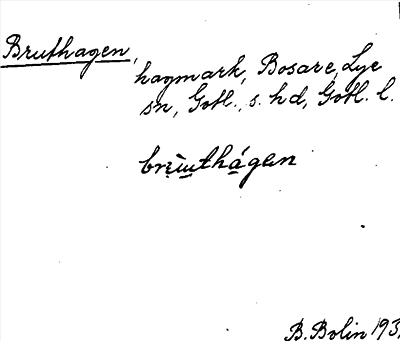 Bruthagen,
hagmark, Bosarve, Lye
sn, Gotl., s. hd, Gotl. l.
brùthágen
B. Bolin 193